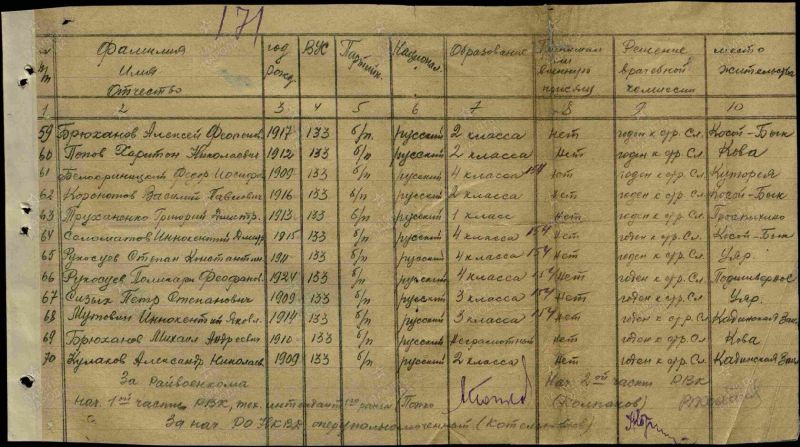 171
№ п/п Фамилия Имя Отчество год рожд ВУС Партийн. Национал. Образование Принимал ли военную присягу Решение врачебной комиссии место жительства
1 2 3 4 5 6 7 8 9 10
59 Брюханов Алексей 1917 133 б/п. русский 2 класса нет годен к стр. Сл. Косой-Бык
60 Попов Харитон Николаевич 1912 133 б/п русский 2 класса нет годен к стр. Сл. Кова
61 Федор Иосифо 1909 133 б/п русский 4 класса 154 нет годен к стр. Сл.
62 Василий Павлович 1916 133 б/п русский 2 класса нет годен к стр. Сл. Косой-Бык
63 Труханенко Григорий Дмитр. 1913 133 б/п русский 1 класс нет годен к стр. Сл.
64 Соломатов Иннокентий 1915 133 б/п русский 4 класса 154 нет годен к стр. Сл. Косой-Бык
65 Рукосуев Степан Константин 133 б/п русский 4 класса 154 нет годен к стр. Сл. Уяр.
66 Рукосуев Поликарп Феофанов. 1924 133 б/п русский 4 класса 154 нет годен к стр. Сл.
67 Сизых Петр Степанович 1909 133 б/п русский 3 класса 154 нет годен к стр. Сл. Уяр.
68 Мутовин Иннокентий Яковл. 1914 133 б/п русский 3 класса 154 нет годен к стр. Сл.
69 Брюханов Михаил Андреевич 1910 133 б/п русский неграмотный нет годен к стр. Сл. Кова
70 Кулаков Александр Николаев. 1909 133 б/п русский 2 класса нет годен к стр. Сл.
За Райвоенкома Нач. 2ой части РВК
Нач. 1ой части РВК, тех. интендант 1го ранга
За нач. РО НКВД оперуполномоченный